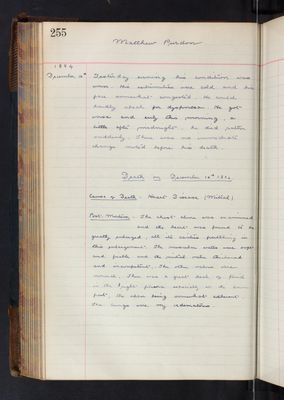 255
Matthew Purdon
1894
December 10th Yesterday evening his condition was
worse. His extremities were cold and his
face somewhat congested. He could
hardly speak for dyspnoea. He got
worse and early this morning, a
little after midnight, he died rather
suddenly. There was no immediate
change noted before his death.
Death on December 10th 1894
Cause of Death - Heart Disease (Mitral).
Post Mortem - The chest alone was examined
and the heart was found to be
greatly enlarged, all its cavities partaking in
this enlargement. The muscular walls were soft
and feeble and the mitral valve thickened
and incompetent. The other valves were
normal. There was a great deal of fluid
in the right pleura especially in the lower
part, the apex being somewhat adherent.
The lungs were very oedematous.